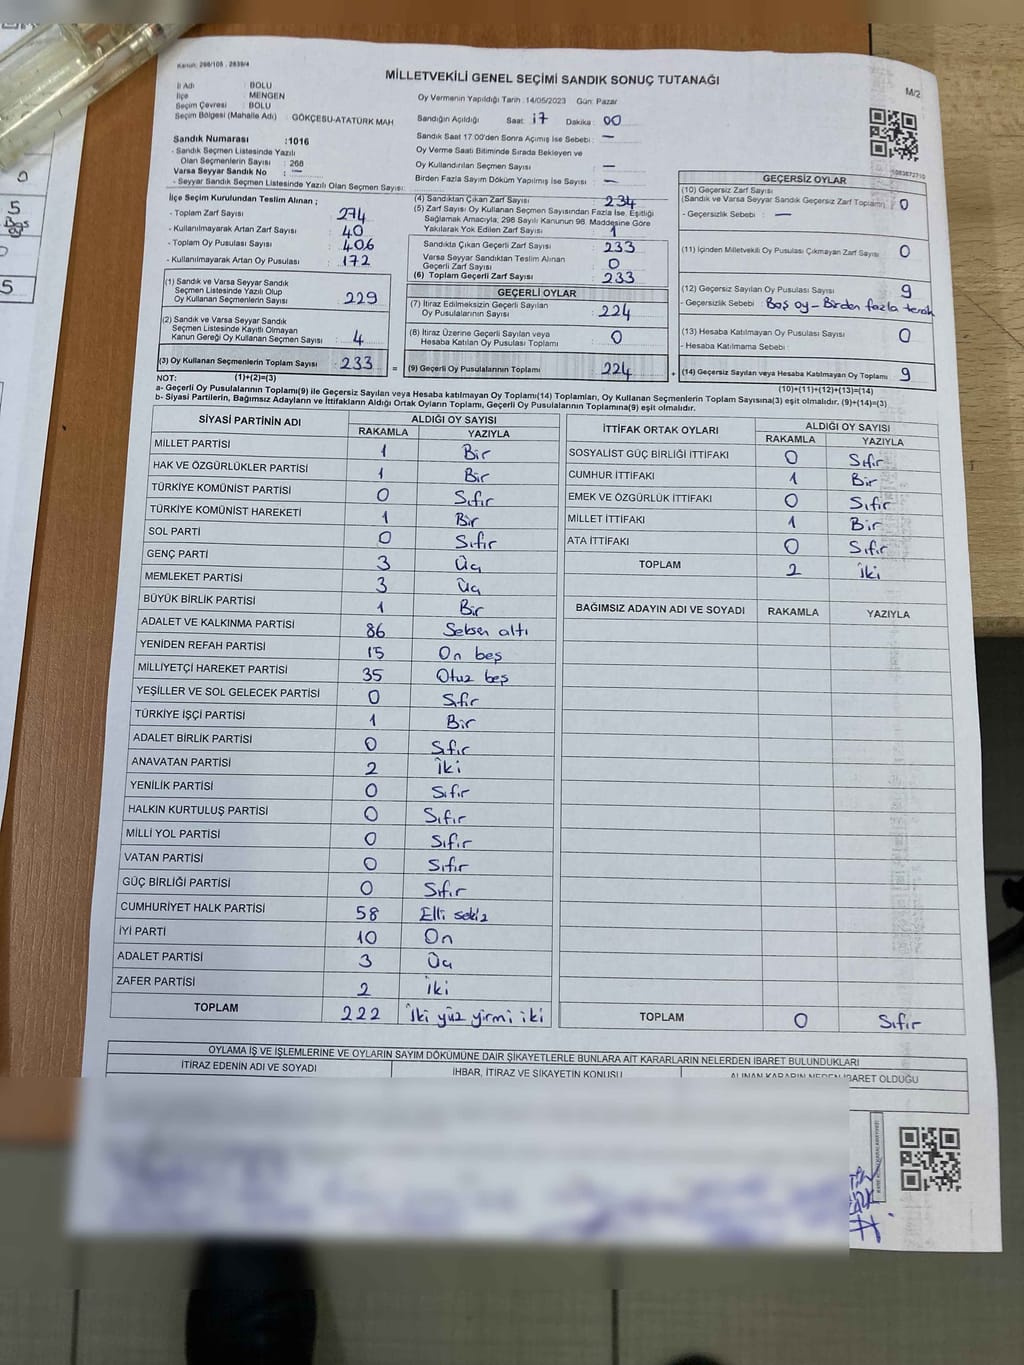 Kanun: 298/105 , 2839/4
MİLLETVEKİLİ GENEL SEÇİMİ SANDIK SONUÇ TUTANAĞI
M/2
İl Adı : BOLU
İlçe : MENGEN
Seçim Çevresi : BOLU
Seçim Bölgesi (Mahalle Adı) : GÖKÇESU-ATATÜRK MAH
Oy Vermenin Yapıldığı Tarih :14/05/2023 Gün: Pazar
Sandığın Açıldığı Saat: 17 Dakika: 00
Sandık Saat 17:00'den Sonra Açımış İse Sebebi: —
Oy Verme Saati Bitiminde Sırada Bekleyen ve
Oy Kullandırılan Seçmen Sayısı : —
Birden Fazla Sayım Döküm Yapılmış İse Sayısı : —
Sandık Numarası :1016
- Sandık Seçmen Listesinde Yazılı
Olan Seçmenlerin Sayısı : 268
Varsa Seyyar Sandık No : —
- Seyyar Sandık Seçmen Listesinde Yazılı Olan Seçmen Sayısı:
İlçe Seçim Kurulundan Teslim Alınan ;
- Toplam Zarf Sayısı : 274
- Kullanılmayarak Artan Zarf Sayısı : 40
- Toplam Oy Pusulası Sayısı : 406
- Kullanılmayarak Artan Oy Pusulası : 172
(1) Sandık ve Varsa Seyyar Sandık
Seçmen Listesinde Yazılı Olup
Oy Kullanan Seçmenlerin Sayısı : 229
(2) Sandık ve Varsa Seyyar Sandık
Seçmen Listesinde Kayıtlı Olmayan
Kanun Gereği Oy Kullanan Seçmen Sayısı : 4
(3) Oy Kullanan Seçmenlerin Toplam Sayısı : 233
(1)+(2)=(3)
(4) Sandıktan Çıkan Zarf Sayısı : 234
(5) Zarf Sayısı Oy Kullanan Seçmen Sayısından Fazla İse, Eşitliği
Sağlamak Amacıyla; 298 Sayılı Kanunun 98. Maddesine Göre
Yakılarak Yok Edilen Zarf Sayısı : 1
Sandıkta Çıkan Geçerli Zarf Sayısı : 233
Varsa Seyyar Sandıktan Teslim Alınan
Geçerli Zarf Sayısı : 0
(6) Toplam Geçerli Zarf Sayısı : 233
GEÇERLİ OYLAR
(7) İtiraz Edilmeksizin Geçerli Sayılan
Oy Pusulalarının Sayısı : 224
(8) İtiraz Üzerine Geçerli Sayılan veya
Hesaba Katılan Oy Pusulası Toplamı : 0
= (9) Geçerli Oy Pusulalarının Toplamı : 224
5083872710
GEÇERSİZ OYLAR
(10) Geçersiz Zarf Sayısı
(Sandık ve Varsa Seyyar Sandık Geçersiz Zarf Toplamı) : 0
- Geçersizlik Sebebi : —
(11) İçinden Milletvekili Oy Pusulası Çıkmayan Zarf Sayısı : 0
(12) Geçersiz Sayılan Oy Pusulası Sayısı : 9
- Geçersizlik Sebebi : Boş oy – Birden fazla tercih
(13) Hesaba Katılmayan Oy Pusulası Sayısı : 0
- Hesaba Katılmama Sebebi :
+ (14) Geçersiz Sayılan veya Hesaba Katılmayan Oy Toplamı : 9
(10)+(11)+(12)+(13)=(14)
NOT:
a- Geçerli Oy Pusulalarının Toplamı(9) ile Geçersiz Sayılan veya Hesaba katılmayan Oy Toplamı(14) Toplamları, Oy Kullanan Seçmenlerin Toplam Sayısına(3) eşit olmalıdır. (9)+(14)=(3)
b- Siyasi Partilerin, Bağımsız Adayların ve İttifakların Aldığı Ortak Oyların Toplamı, Geçerli Oy Pusulalarının Toplamına(9) eşit olmalıdır.
SİYASİ PARTİNİN ADI ALDIĞI OY SAYISI
RAKAMLA YAZIYLA
MİLLET PARTİSİ 1 Bir
HAK VE ÖZGÜRLÜKLER PARTİSİ 1 Bir
TÜRKİYE KOMÜNİST PARTİSİ 0 Sıfır
TÜRKİYE KOMÜNİST HAREKETİ 1 Bir
SOL PARTİ 0 Sıfır
GENÇ PARTİ 3 Üç
MEMLEKET PARTİSİ 3 Üç
BÜYÜK BİRLİK PARTİSİ 1 Bir
ADALET VE KALKINMA PARTİSİ 86 Seksen altı
YENİDEN REFAH PARTİSİ 15 On beş
MİLLİYETÇİ HAREKET PARTİSİ 35 Otuz beş
YEŞİLLER VE SOL GELECEK PARTİSİ 0 Sıfır
TÜRKİYE İŞÇİ PARTİSİ 1 Bir
ADALET BİRLİK PARTİSİ 0 Sıfır
ANAVATAN PARTİSİ 2 İki
YENİLİK PARTİSİ 0 Sıfır
HALKIN KURTULUŞ PARTİSİ 0 Sıfır
MİLLİ YOL PARTİSİ 0 Sıfır
VATAN PARTİSİ 0 Sıfır
GÜÇ BİRLİĞİ PARTİSİ 0 Sıfır
CUMHURİYET HALK PARTİSİ 58 Elli sekiz
İYİ PARTİ 10 On
ADALET PARTİSİ 3 Üç
ZAFER PARTİSİ 2 İki
TOPLAM 222 İki yüz yirmi iki
İTTİFAK ORTAK OYLARI ALDIĞI OY SAYISI
RAKAMLA YAZIYLA
SOSYALİST GÜÇ BİRLİĞİ İTTİFAKI 0 Sıfır
CUMHUR İTTİFAKI 1 Bir
EMEK VE ÖZGÜRLÜK İTTİFAKI 0 Sıfır
MİLLET İTTİFAKI 1 Bir
ATA İTTİFAKI 0 Sıfır
TOPLAM 2 İki
BAĞIMSIZ ADAYIN ADI VE SOYADI RAKAMLA YAZIYLA
TOPLAM 0 Sıfır
OYLAMA İŞ VE İŞLEMLERİNE VE OYLARIN SAYIM DÖKÜMÜNE DAİR ŞİKAYETLERLE BUNLARA AİT KARARLARIN NELERDEN İBARET BULUNDUKLARI
İTİRAZ EDENİN ADI VE SOYADI İHBAR, İTİRAZ VE ŞİKAYETİN KONUSU ALINAN KARARIN NEDEN İBARET OLDUĞU
0
5
5